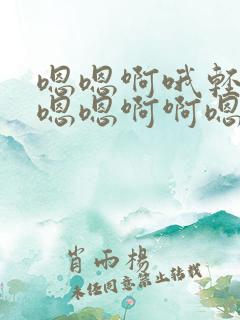 嗯嗯啊哦轻
嗯嗯啊啊嗯
肖雨杨
未经同意禁止转载